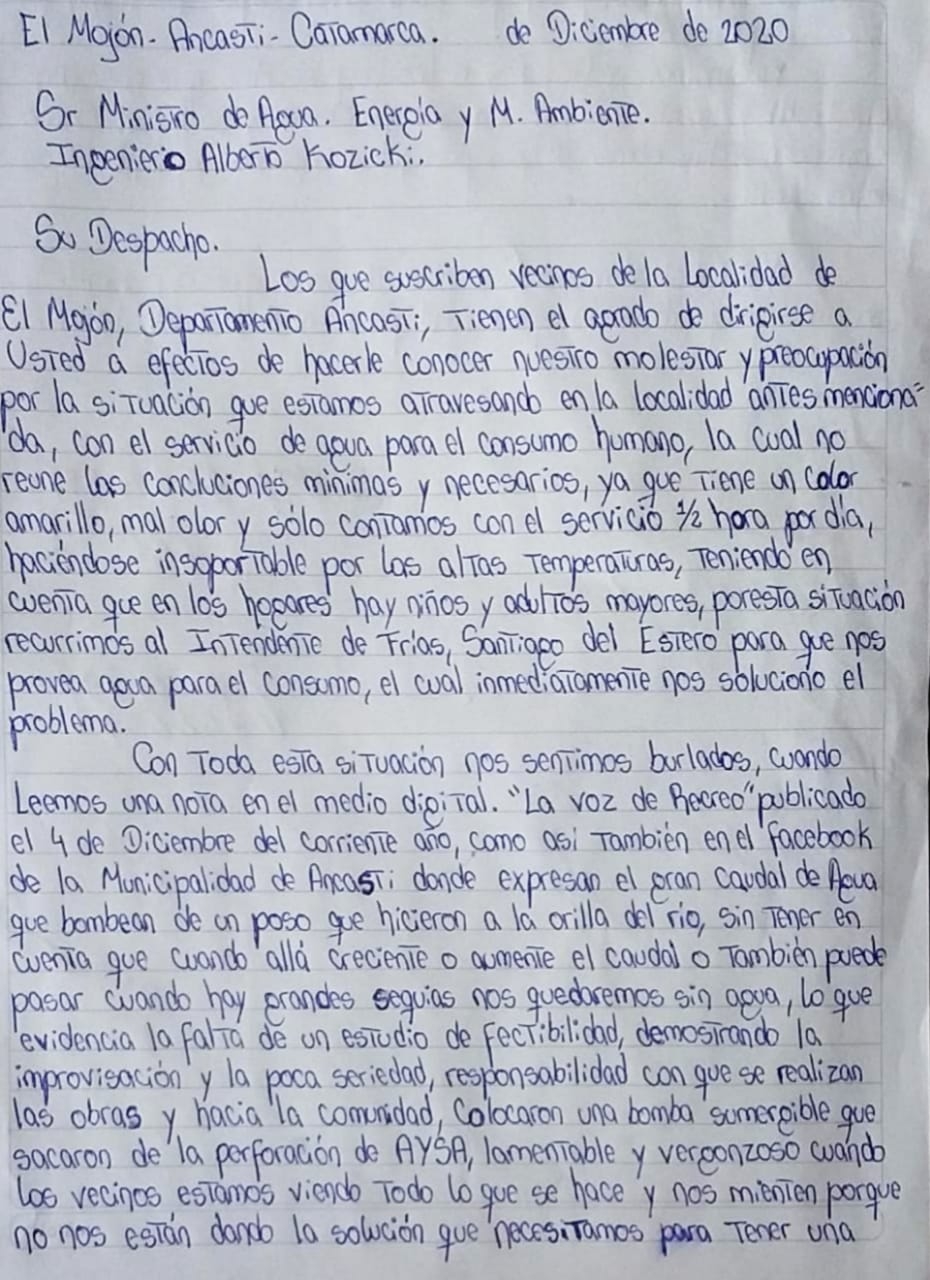 El Mojón - Ancasti - Catamarca. de Diciembre de 2020
Sr Ministro de Agua. Energía y M. Ambiente.
Ingeniero Alberto Kozicki.
Su Despacho.
Los que suscriben vecinos de la Localidad de
El Mojón, Departamento Ancasti, tienen el agrado de dirigirse a
Usted a efectos de hacerle conocer nuestro molestar y preocupación
por la situación que estamos atravesando en la localidad antes menciona=
da, con el servicio de agua para el consumo humano, la cual no
reune las concluciones minimas y necesarios, ya que tiene un color
amarillo, mal olor y sólo contamos con el servicio 1/2 hora por día,
haciéndose insoportable por las altas temperaturas, teniendo en
cuenta que en los hogares hay niños y adultos mayores, por esta situación
recurrimos al Intendente de Frías, Santiago del Estero para que nos
provea agua para el consumo, el cual inmediatamente nos soluciono el
problema.
Con toda esta situación nos sentimos burlados, cuando
Leemos una nota en el medio digital. "La voz de Recreo" publicado
el 4 de Diciembre del corriente año, como asi también en el facebook
de la Municipalidad de Ancasti donde expresan el gran caudal de Agua
que bombean de un poso que hicieron a la orilla del río, sin tener en
cuenta que cuando allá creciente o aumente el caudal o también puede
pasar cuando hay grandes sequias nos quedaremos sin agua, lo que
evidencia la falta de un estudio de fectibilidad, demostrando la
improvisación y la poca seriedad, responsabilidad con que se realizan
las obras y hacia la comunidad, Colocaron una bomba sumergible que
sacaron de la perforación de AYSA, lamentable y vergonzoso cuando
los vecinos estamos viendo todo lo que se hace y nos mienten porque
no nos están dando la solución que necesitamos para tener una